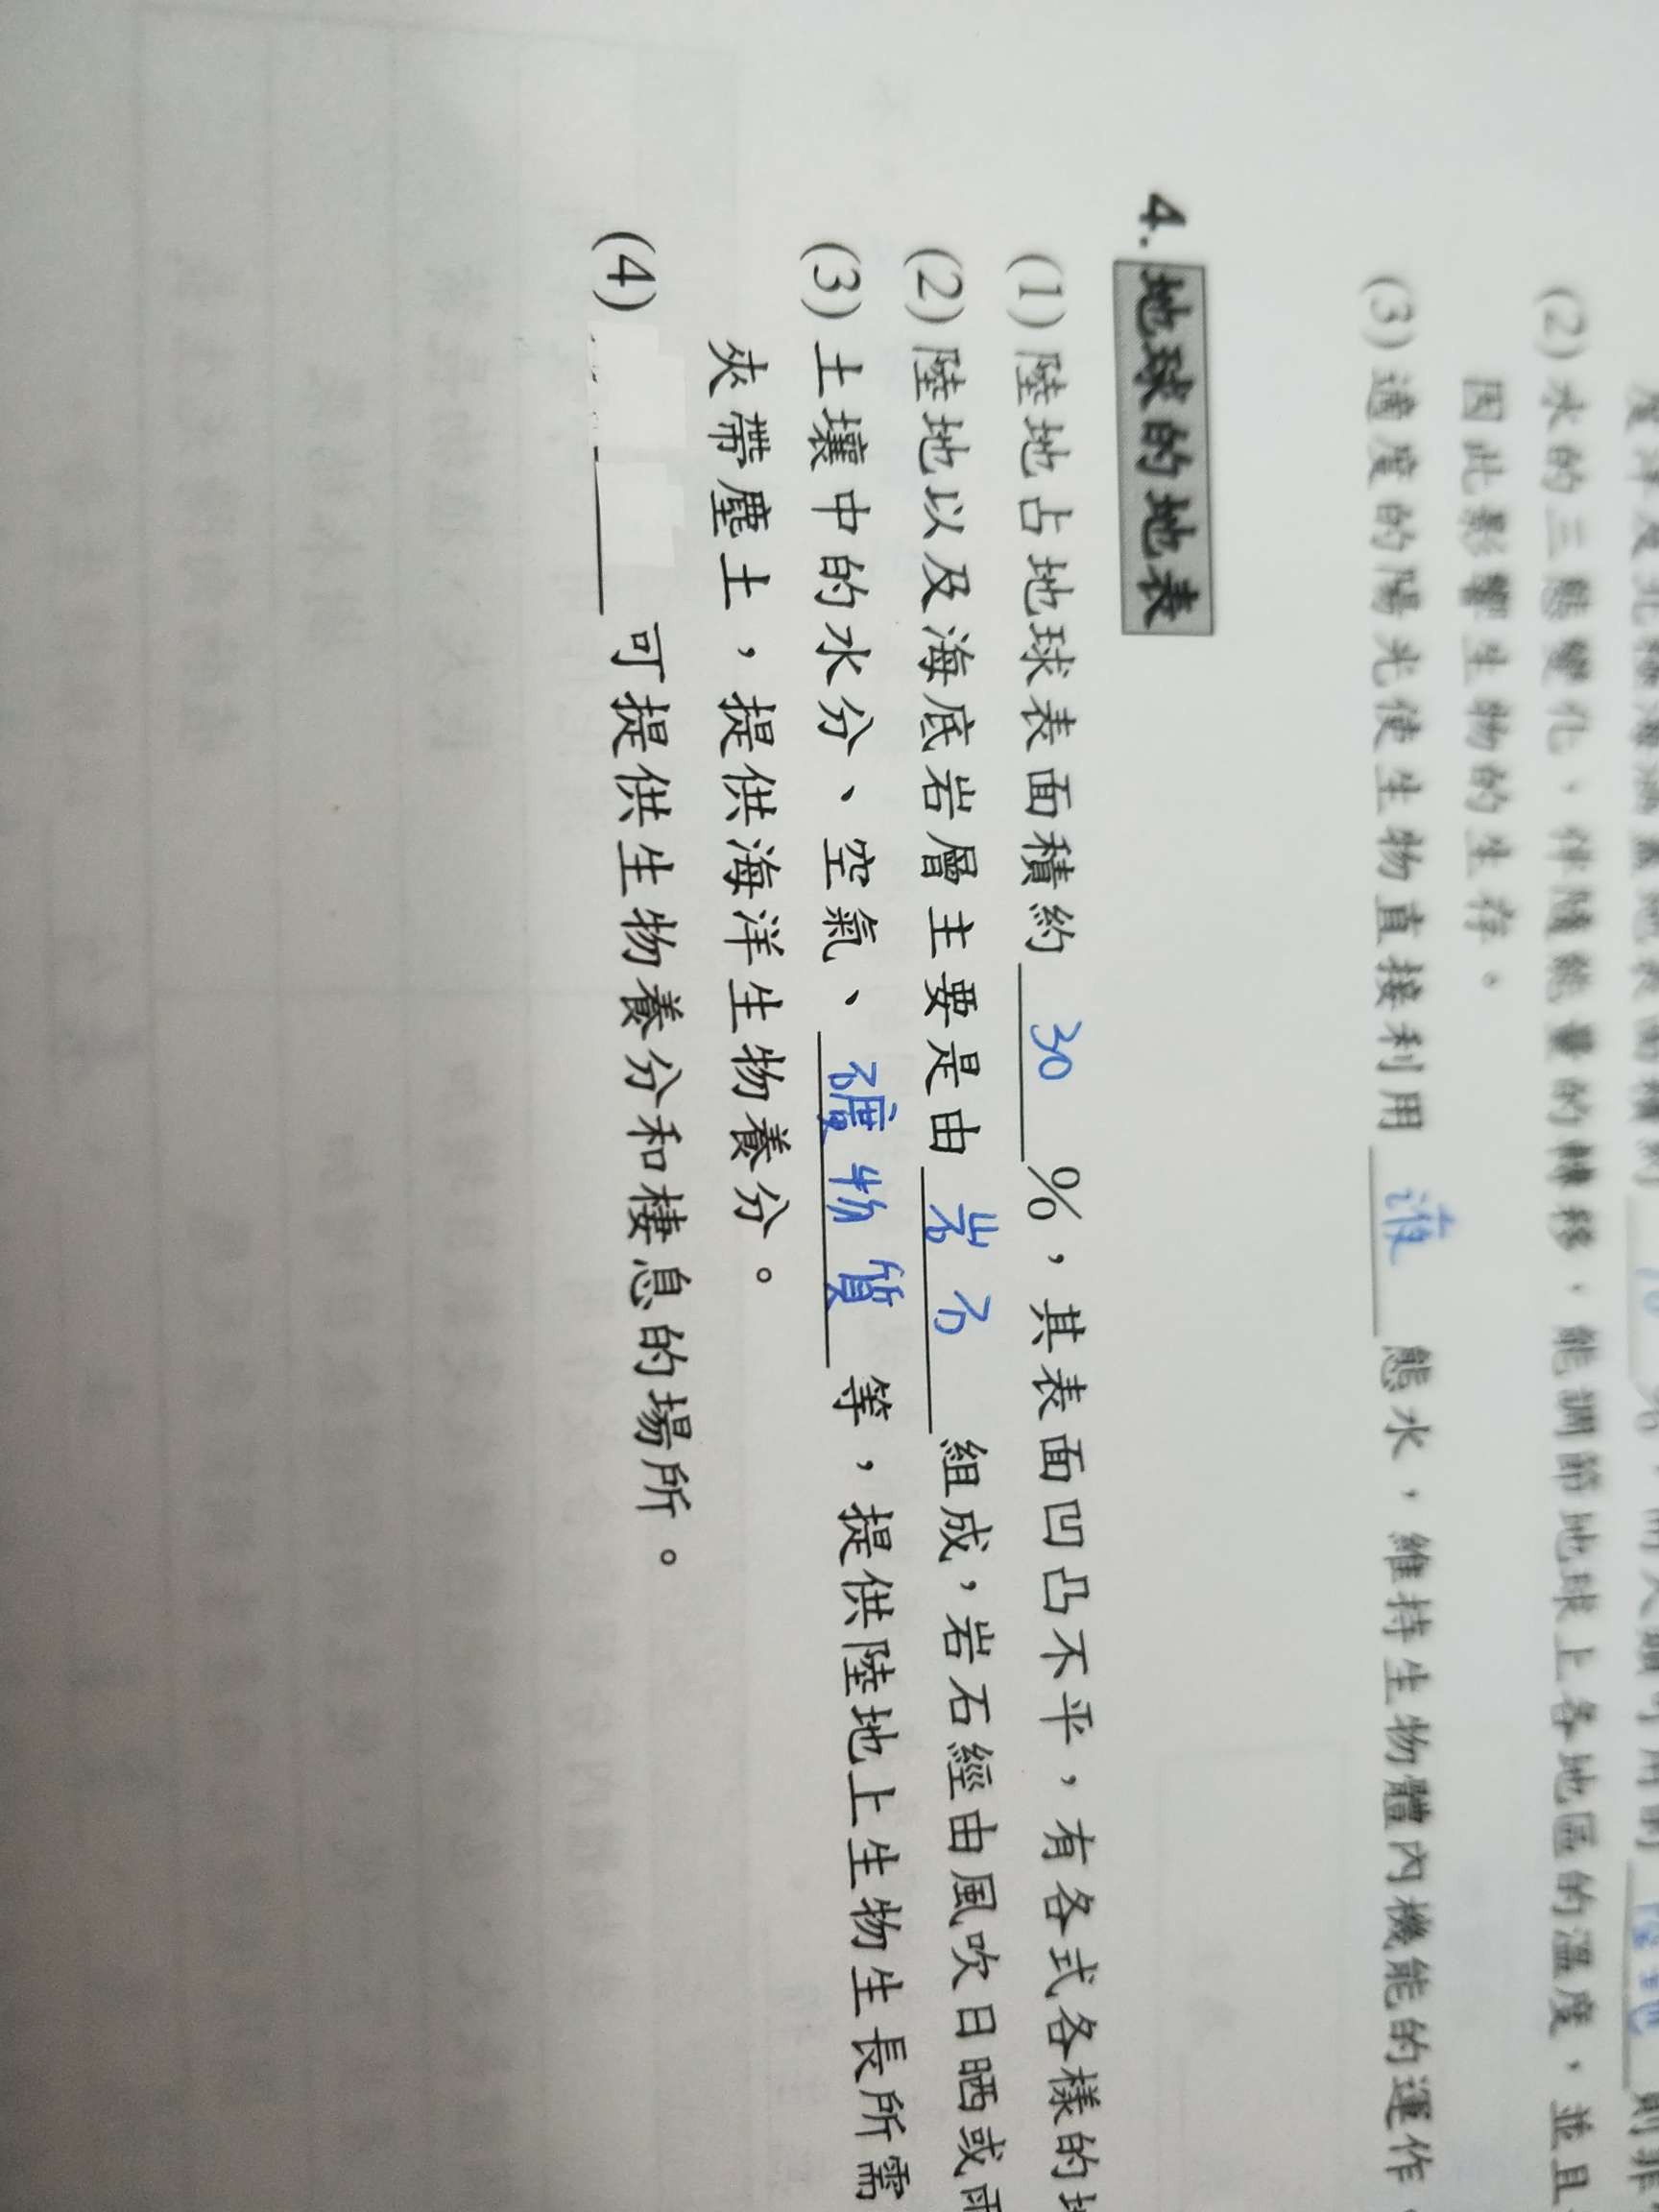 (2) 水的三態變化，伴隨能量的轉移，能調節地球上各地區的溫度，並且
因此影響生物的生存。
(3) 適度的陽光使生物直接利用 液 態水，維持生物體內機能的運作
4. 地球的地表
(1) 陸地占地球表面積約 30 %，其表面凹凸不平，有各式各樣的
(2) 陸地以及海底岩層主要是由 岩石 組成，岩石經由風吹日晒或雨
(3) 土壤中的水分、空氣、 礦物質 等，提供陸地上生物生長所需
夾帶塵土，提供海洋生物養分。
(4) 可提供生物養分和棲息的場所。